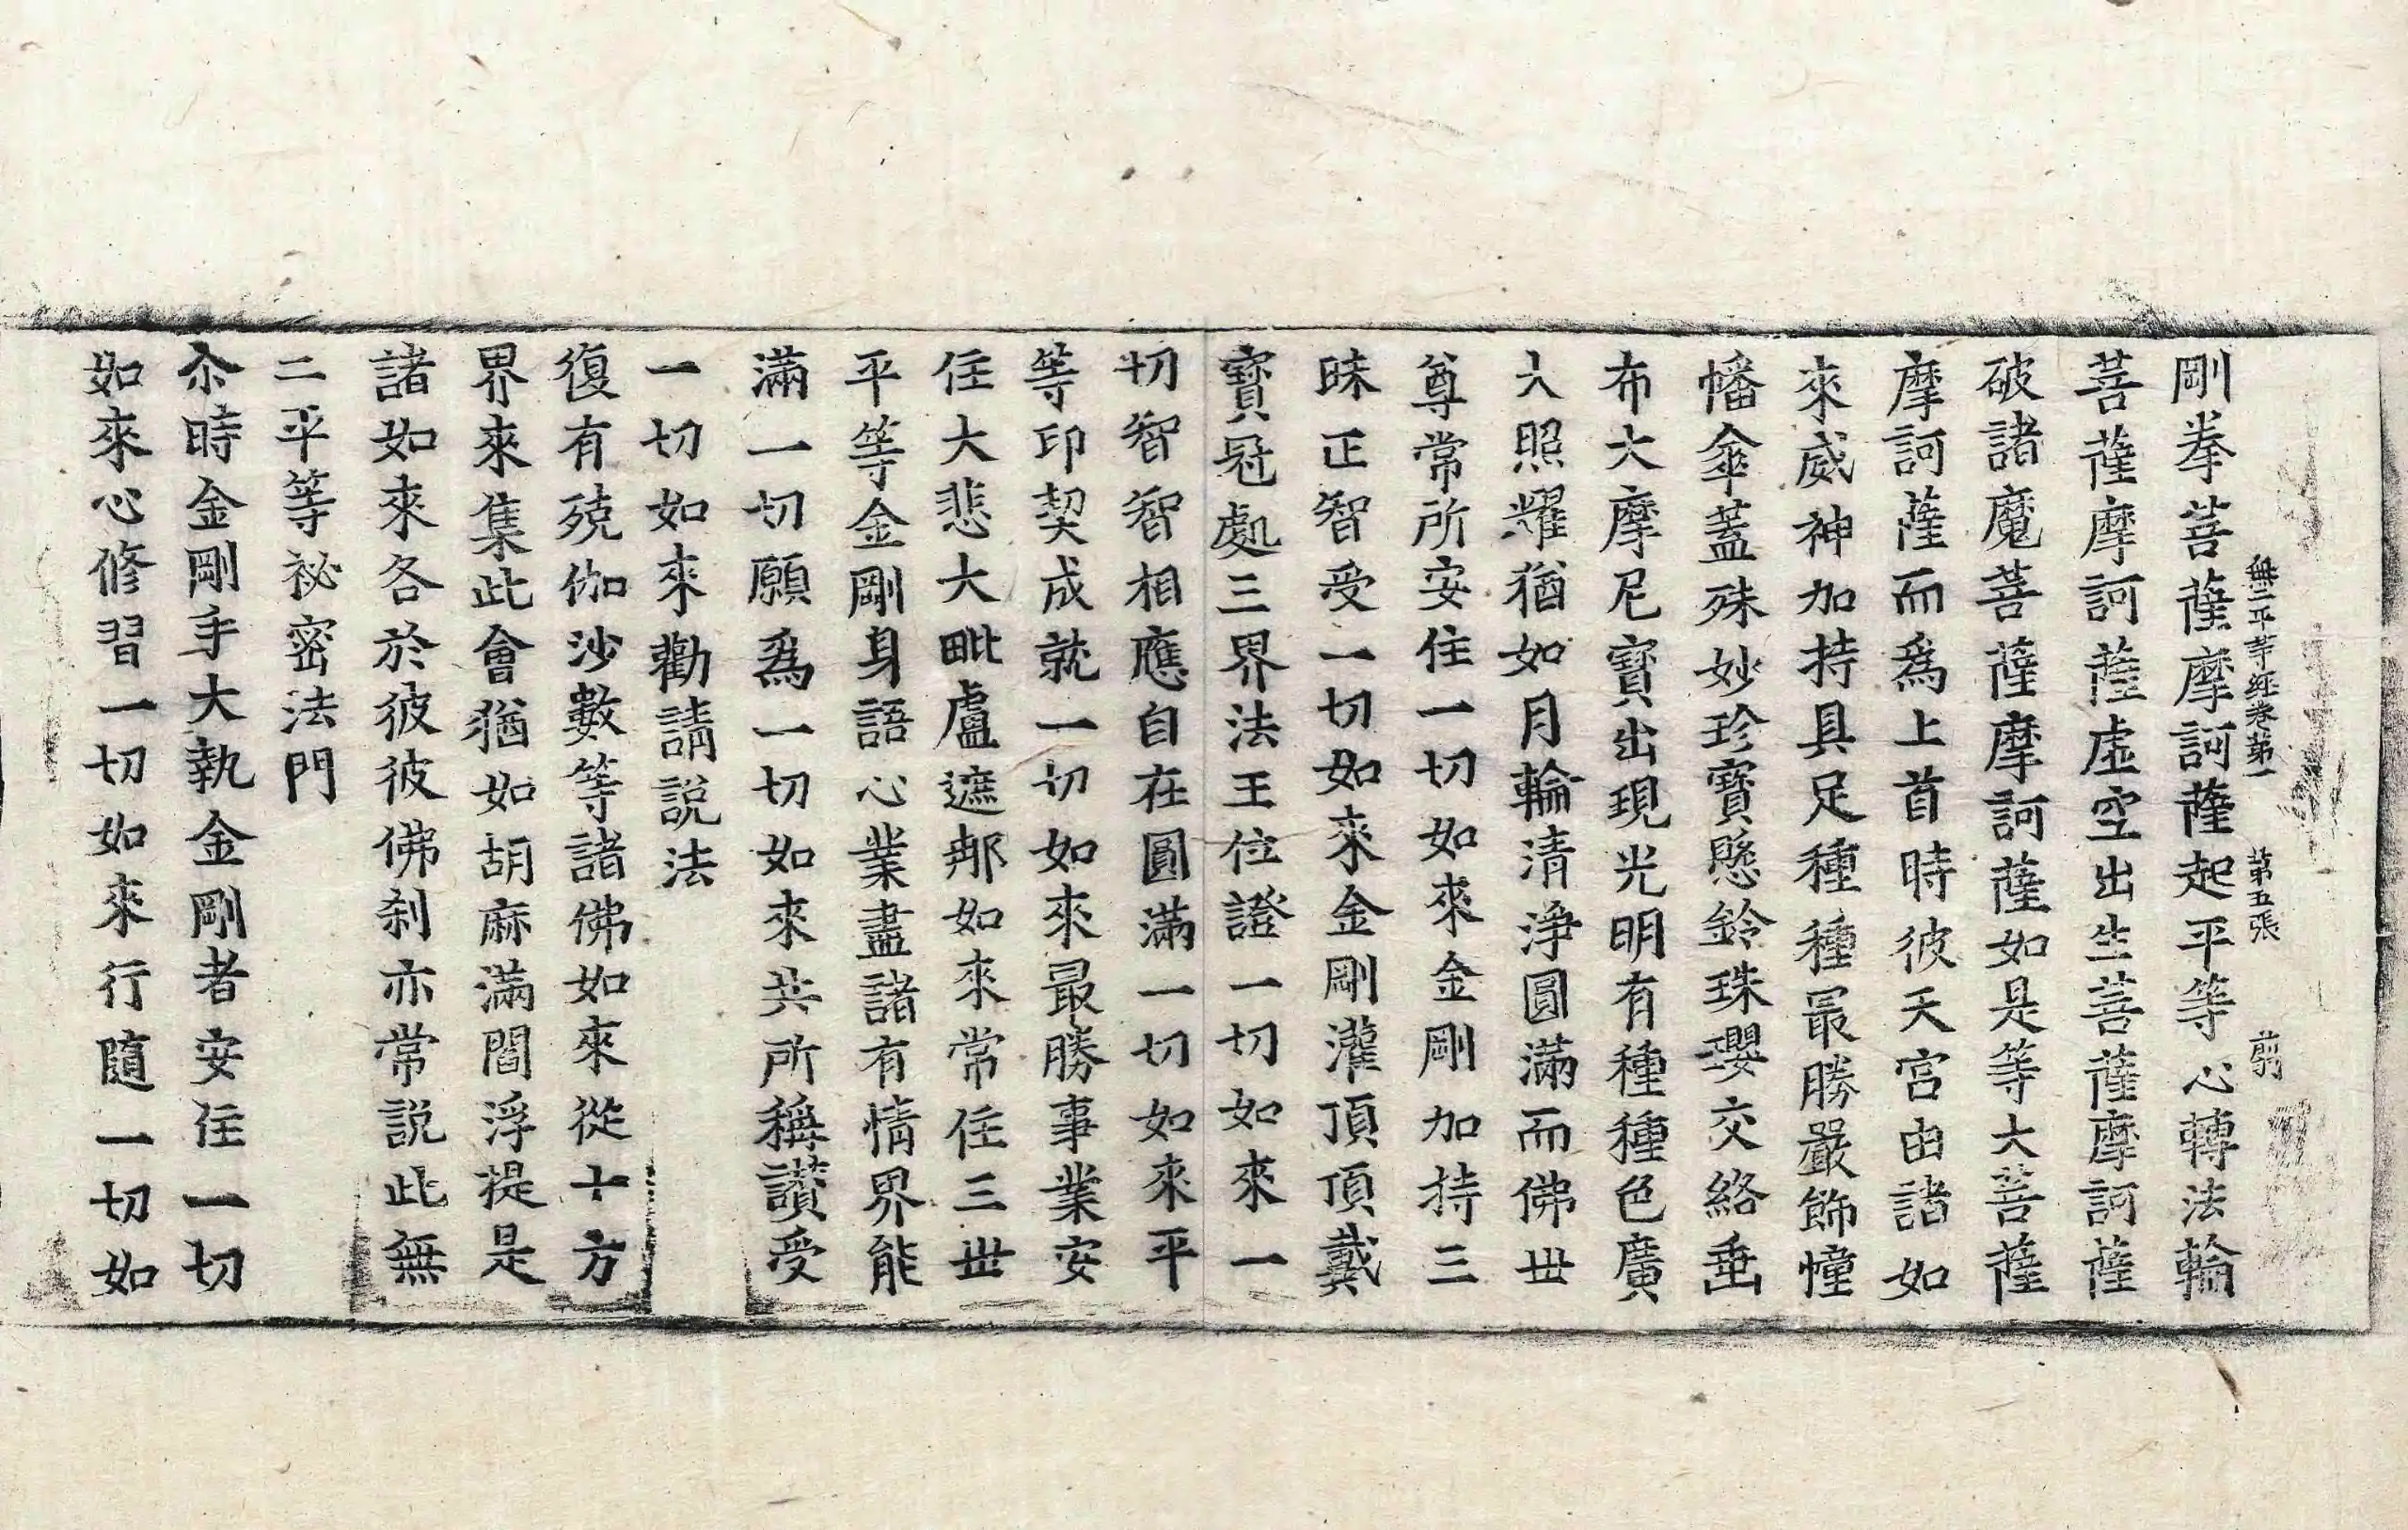 無二平等經卷第一　第五張　翦
剛拳菩薩摩訶薩起平等心轉法輪
菩薩摩訶薩虛空出生菩薩摩訶薩
破諸魔菩薩摩訶薩如是等大菩薩
摩訶薩而爲上首時彼天宮由諸如
來威神加持具足種種最勝嚴飾幢
幡傘蓋殊妙珍寶懸鈴珠瓔交絡垂
布大摩尼寶出現光明有種種色廣
大照耀猶如月輪清淨圓滿而佛世
尊常所安住一切如來金剛加持三
昧正智受一切如來金剛灌頂頂戴
寶冠處三界法王位證一切如來一
切智智相應自在圓滿一切如來平
等印契成就一切如來最勝事業安
住大悲大毗盧遮那如來常住三世
平等金剛身語心業盡諸有情界能
滿一切願爲一切如來共所稱讚受
一切如來勸請説法
復有殑伽沙數等諸佛如來從十方
界來集此會猶如胡麻滿閻浮提是
諸如來各於彼彼佛刹亦常説此無
二平等祕密法門
尒時金剛手大執金剛者安住一切
如來心修習一切如來行隨一切如